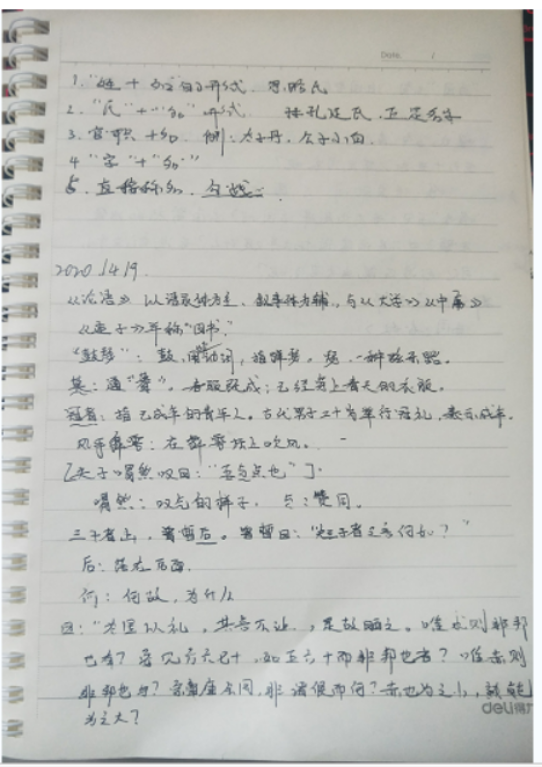 Date. /
1. "姓 + 名" 的形式.
2. "氏"+"名" 形式.
3. 官职 + 名. 例: 太子丹, 公子小白.
4 "字"+"名"
5. 直接称名.
2020.4.19.
《论语》 以语录体为主, 叙事体为辅, 与《大学》《中庸》
《孟子》并称"四书."
"鼓瑟": 鼓, 动词, 指弹瑟. 瑟, 一种弦乐器.
莫: 通"暮". 春服既成: 已经穿上春天的衣服.
冠者: 指已成年的青年人. 古代男子二十岁举行冠礼, 表示成年.
风乎舞雩: 在舞雩坛上吹风.
夫子喟然叹曰: "吾与点也"
喟然: 叹气的样子. 与: 赞同.
三子者出, 曾皙后. 曾皙曰: "夫三子者之言何如?"
后: 落在后面.
何: 何故, 为什么
曰: "为国以礼, 其言不让, 是故哂之. 唯求则非邦
也与? 安见方六七十, 如五六十而非邦也者? 唯赤则
非邦也与? 宗庙会同, 非诸侯而何? 赤也为之小, 孰能
为之大?
deli得力